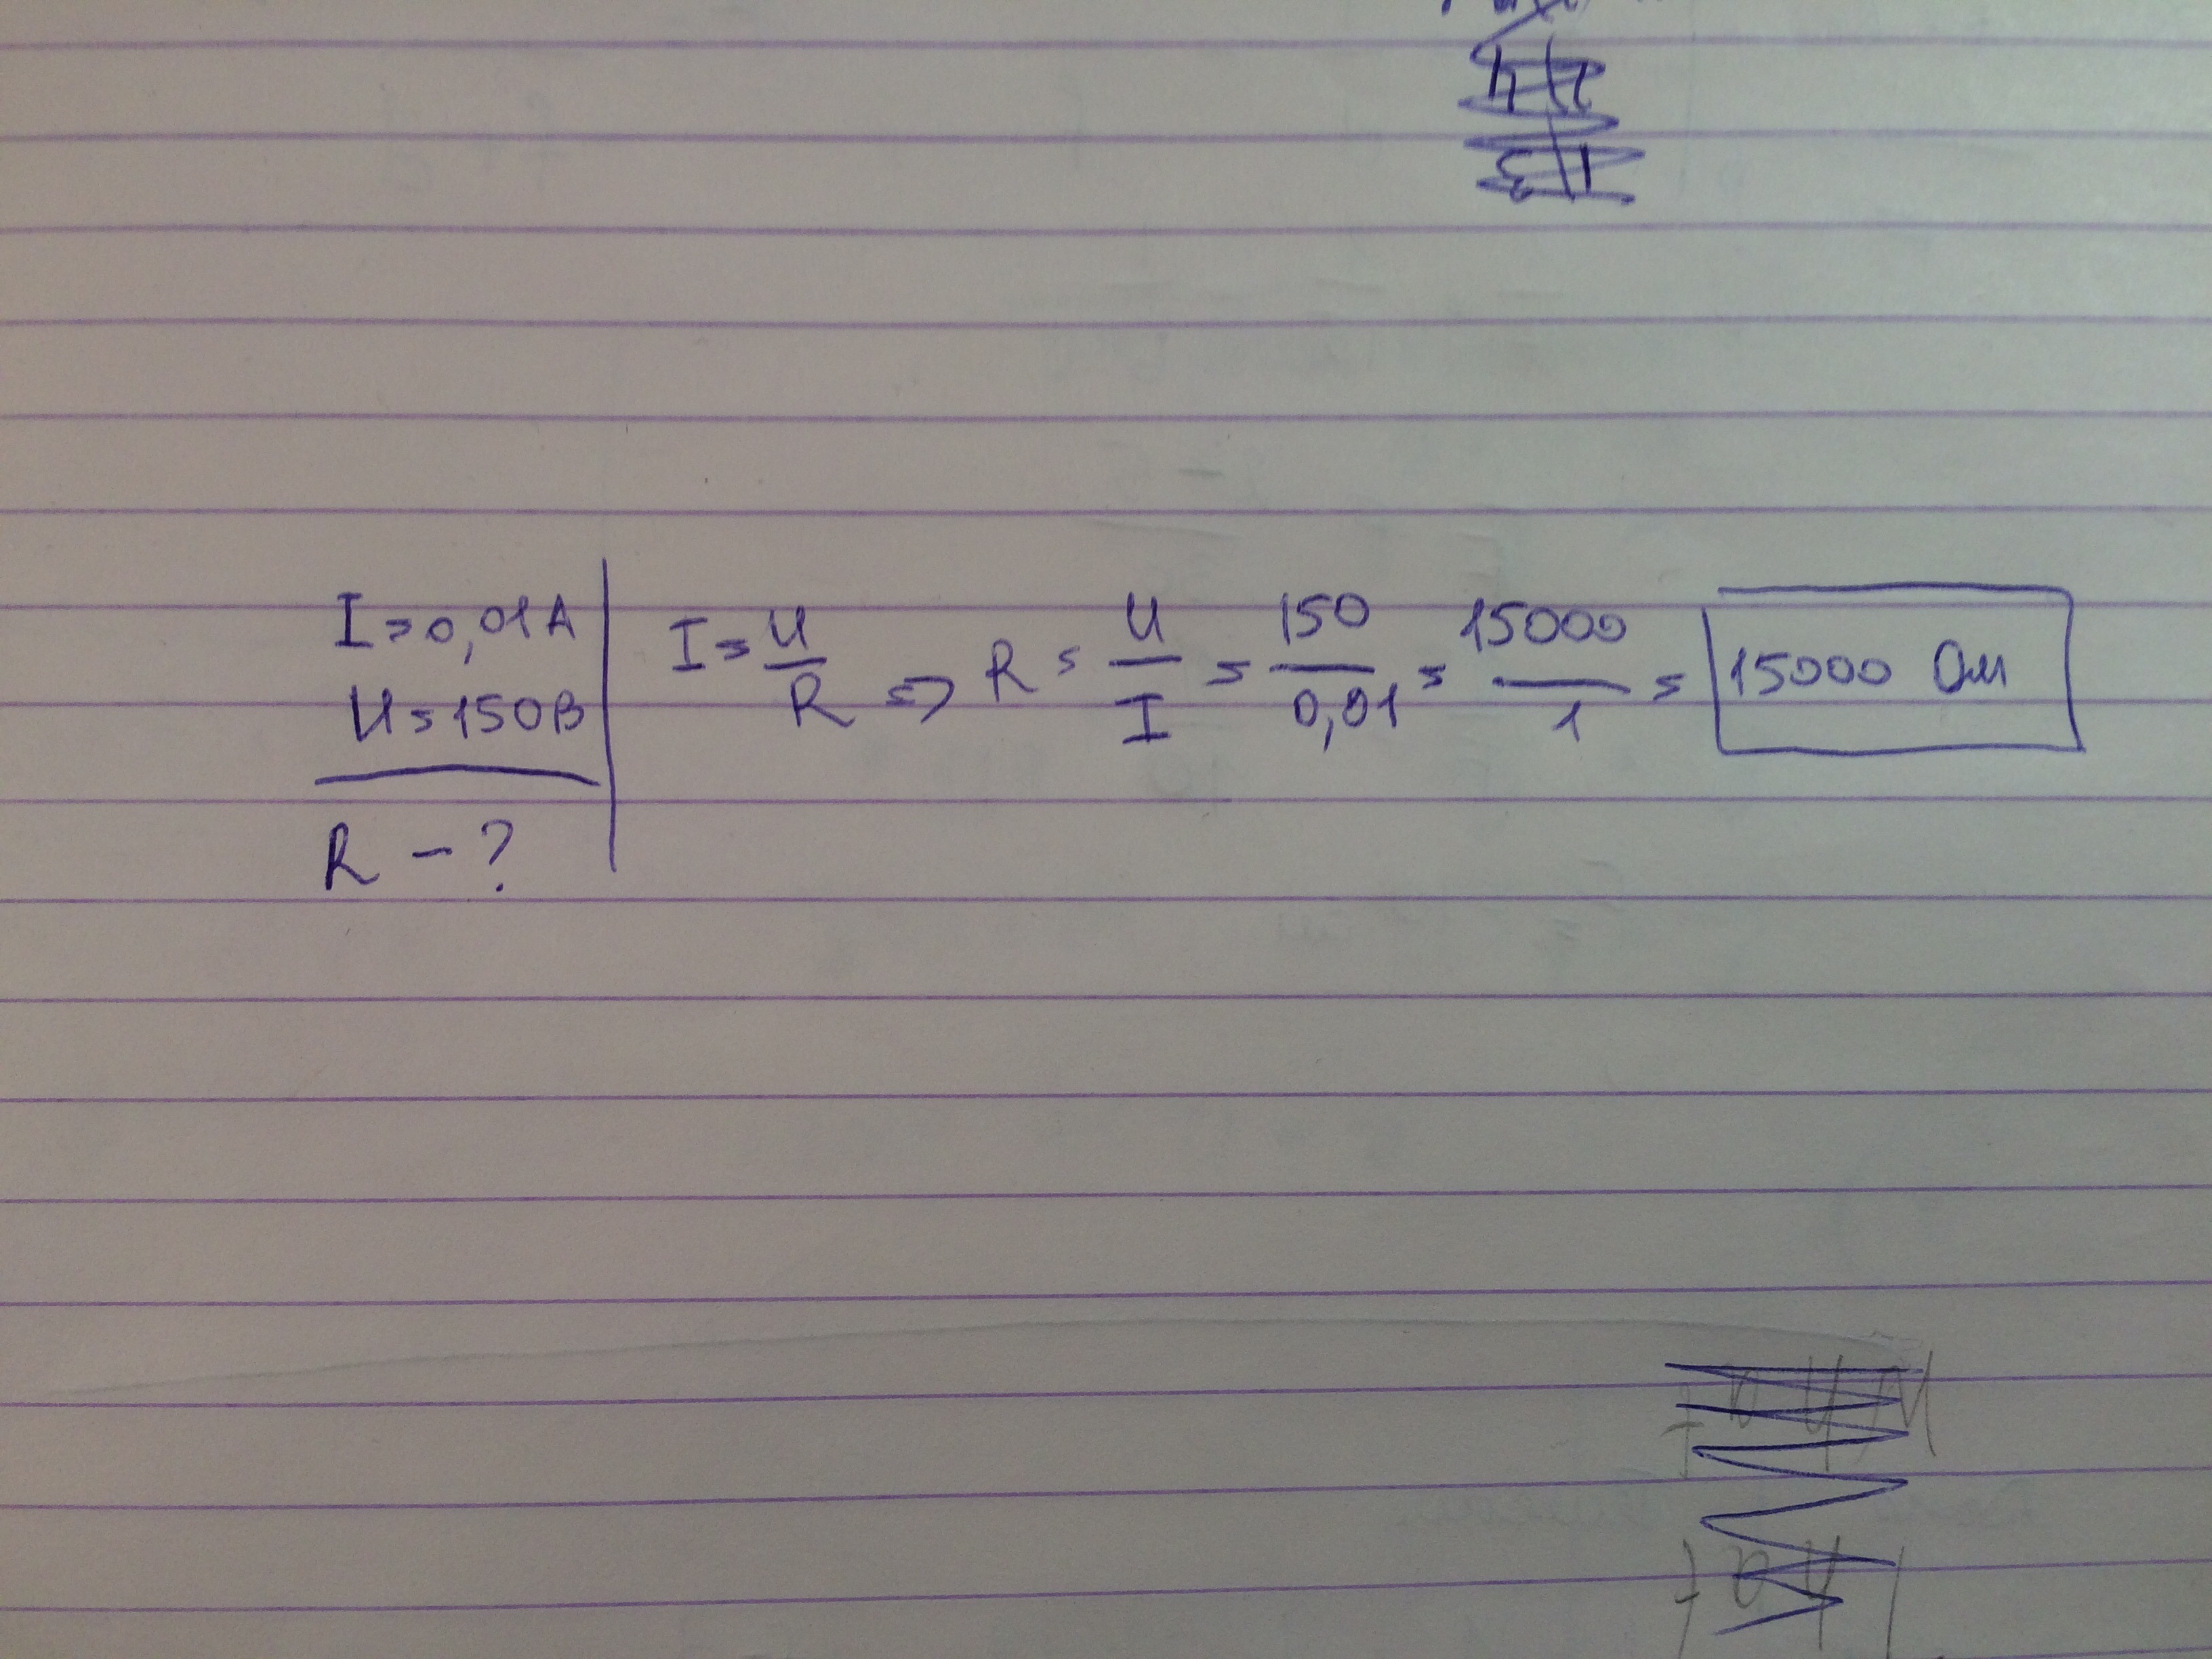 I = 0,01 A
U = 150 В
R - ?
I = U/R => R = U/I = 150/0,01 = 15000/1 = 15000 Ом